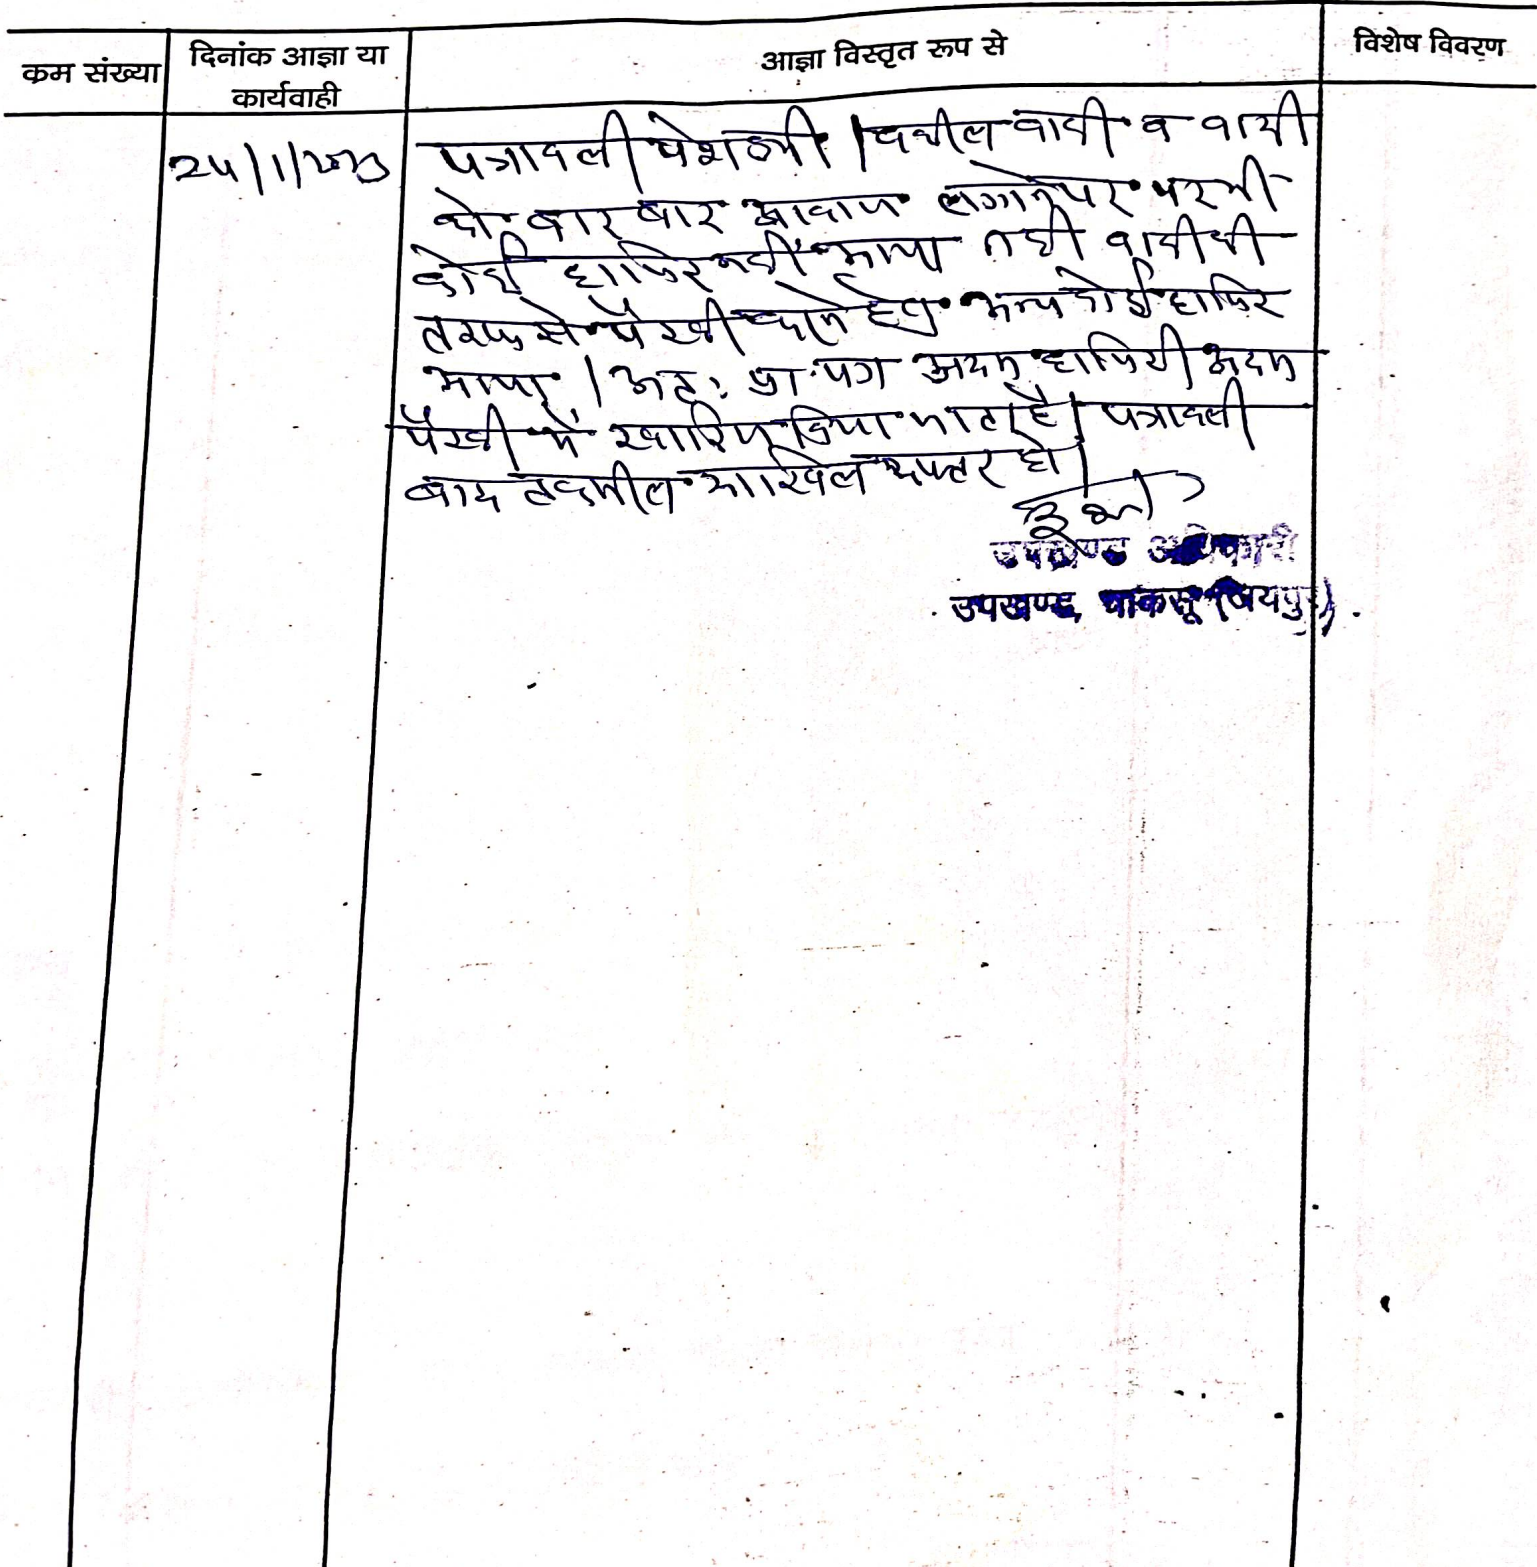 क्रम संख्या
दिनांक आज्ञा या
कार्यवाही
आज्ञा विस्तृत रूप से
विशेष विवरण
24/1/2023
पत्रावली पेश हुयी । वकील वादी व वादी
को बार बार आवाज लगाने पर भी
कोई हाजिर नहीं आया न ही वादी की
तरफ से पैरवी करने हेतु अन्य कोई हाजिर
आया । अतः प्रा. पत्र अदम हाजिरी अदम
पैरवी में खारिज किया जाता है। पत्रावली
बाद तकमील दाखिल दफ्तर हो।
उपखण्ड अधिकारी
उपखण्ड चाकसू (जयपुर)